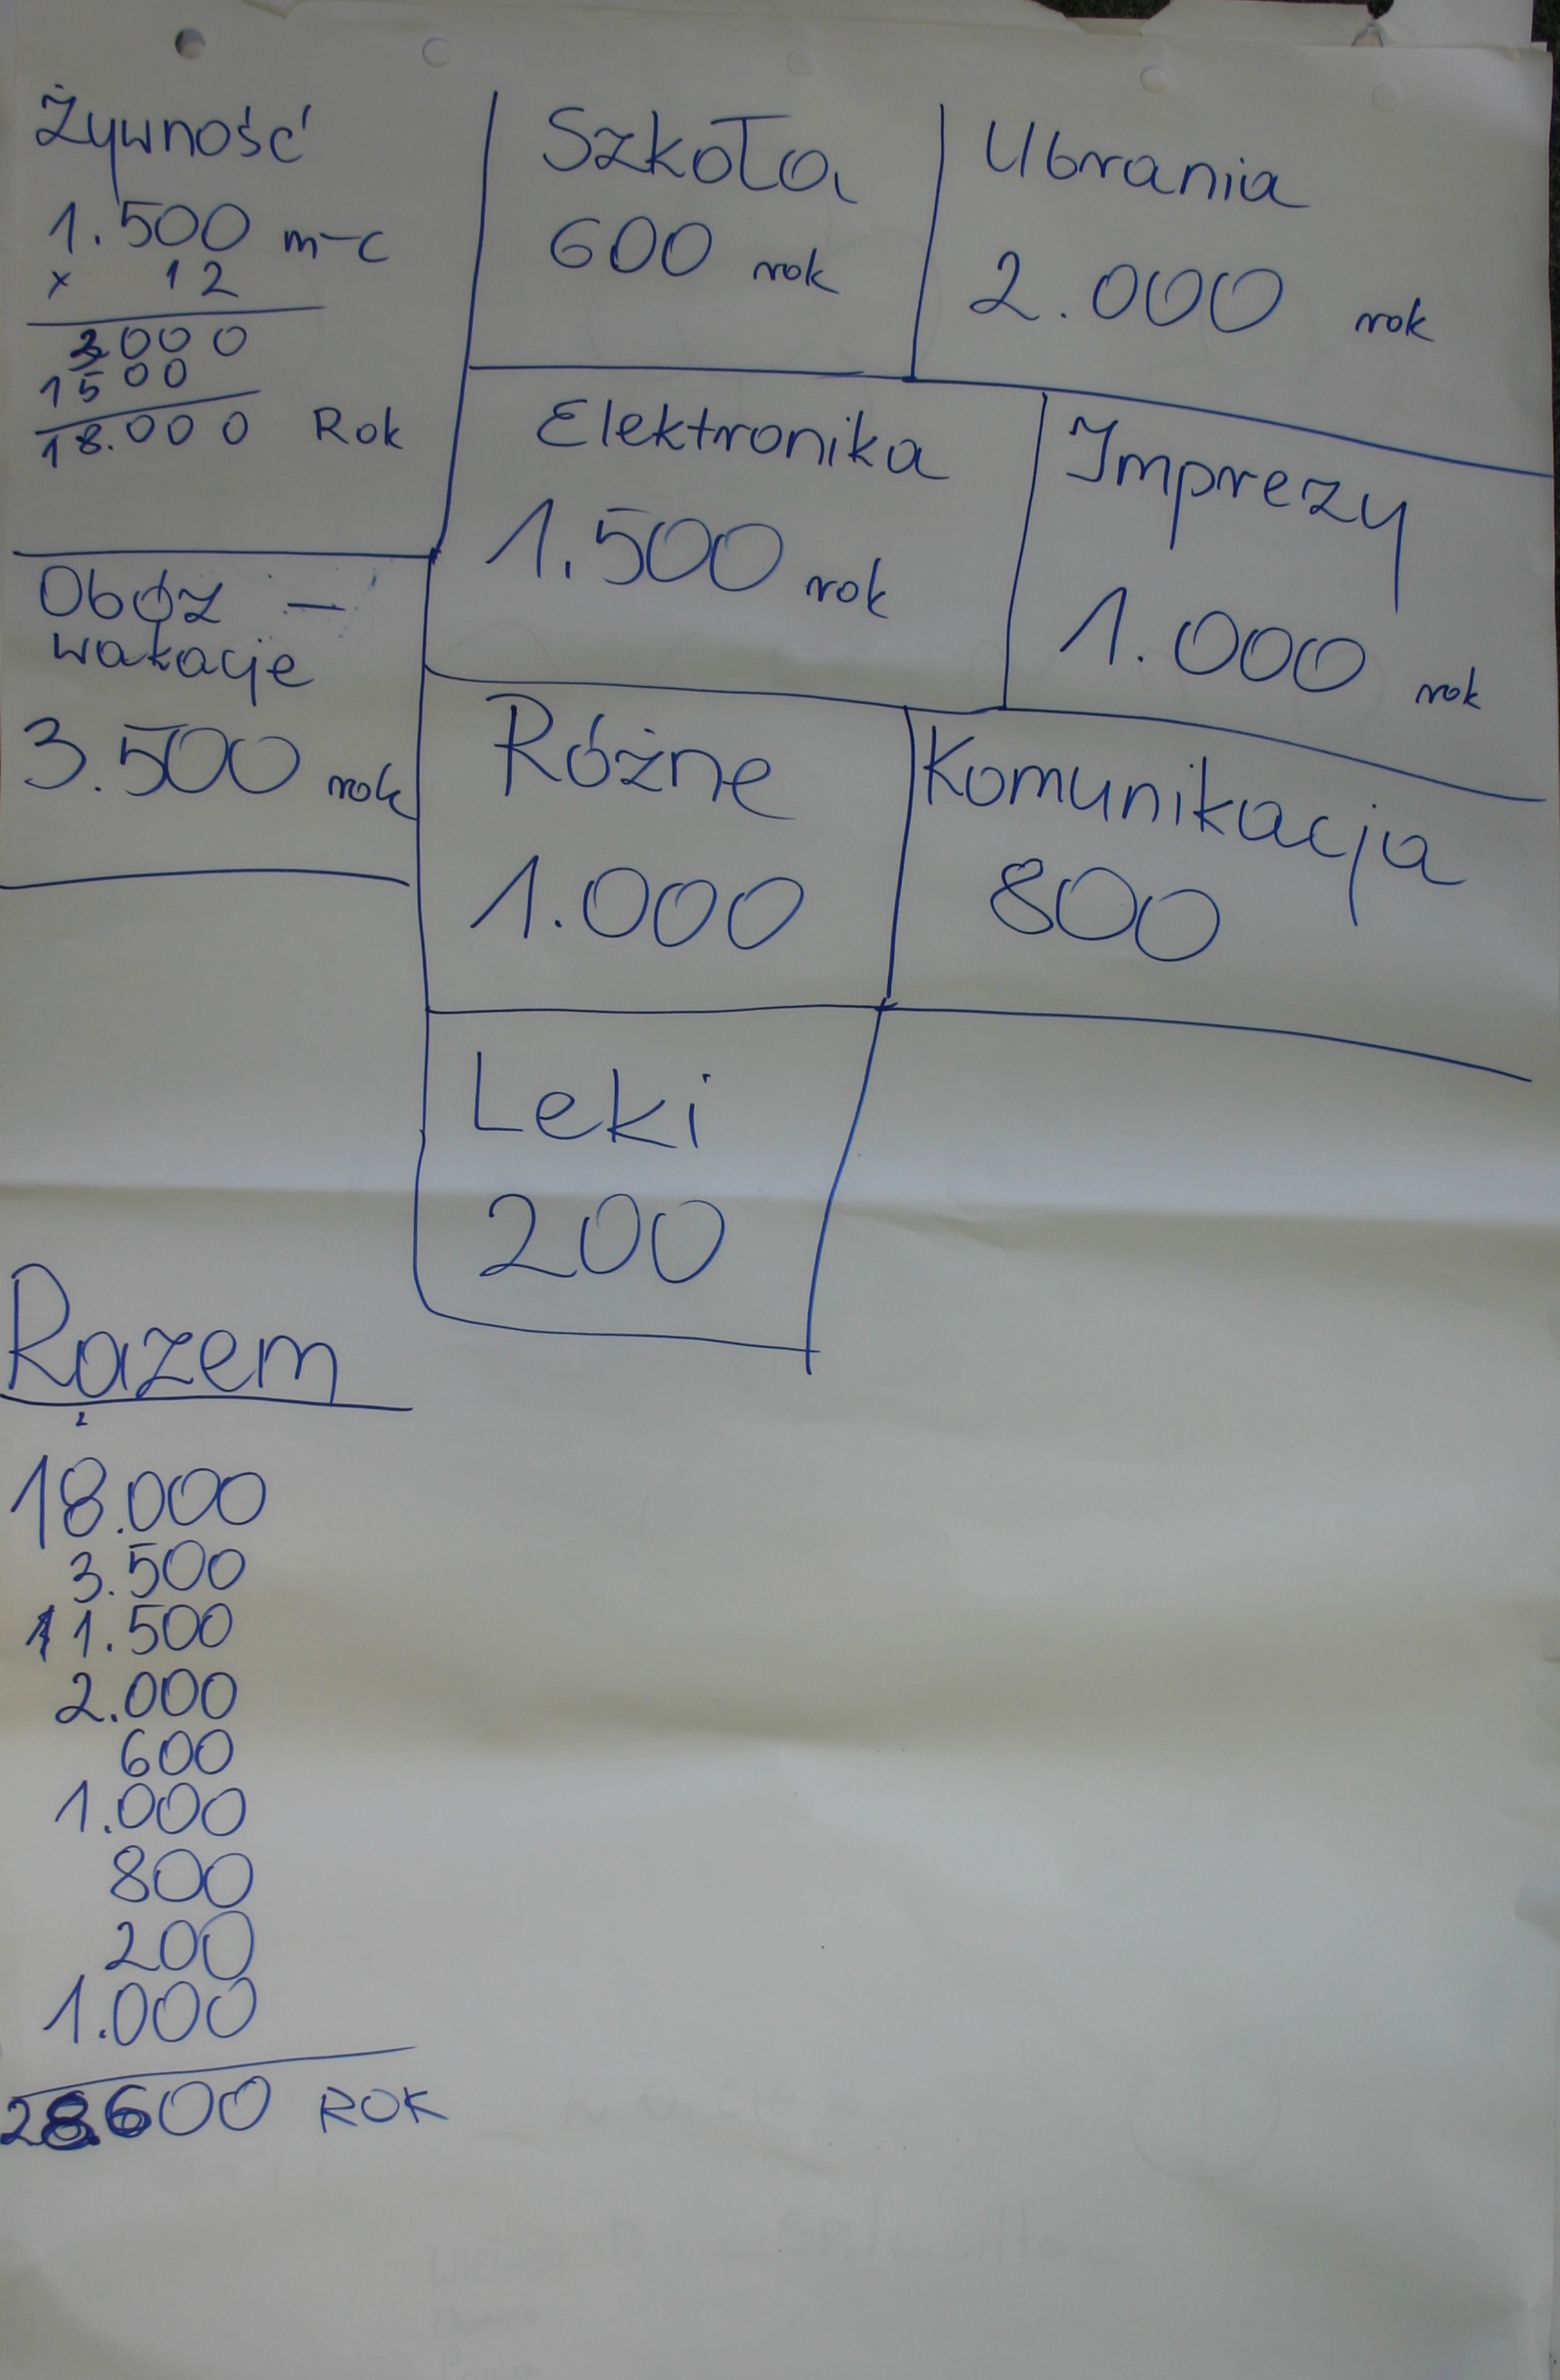 Żywność
1.500 m-c
x 12
3000
1500
18.000 Rok
Szkoła
600 rok
Ubrania
2.000 rok
Elektronika
1.500 rok
Imprezy
1.000 rok
Obóz –
wakacje
3.500 rok
Różne
1.000
Komunikacja
800
Leki
200
Razem
2
18.000
3.500
1.500
2.000
600
1.000
800
200
1.000
28600 ROK